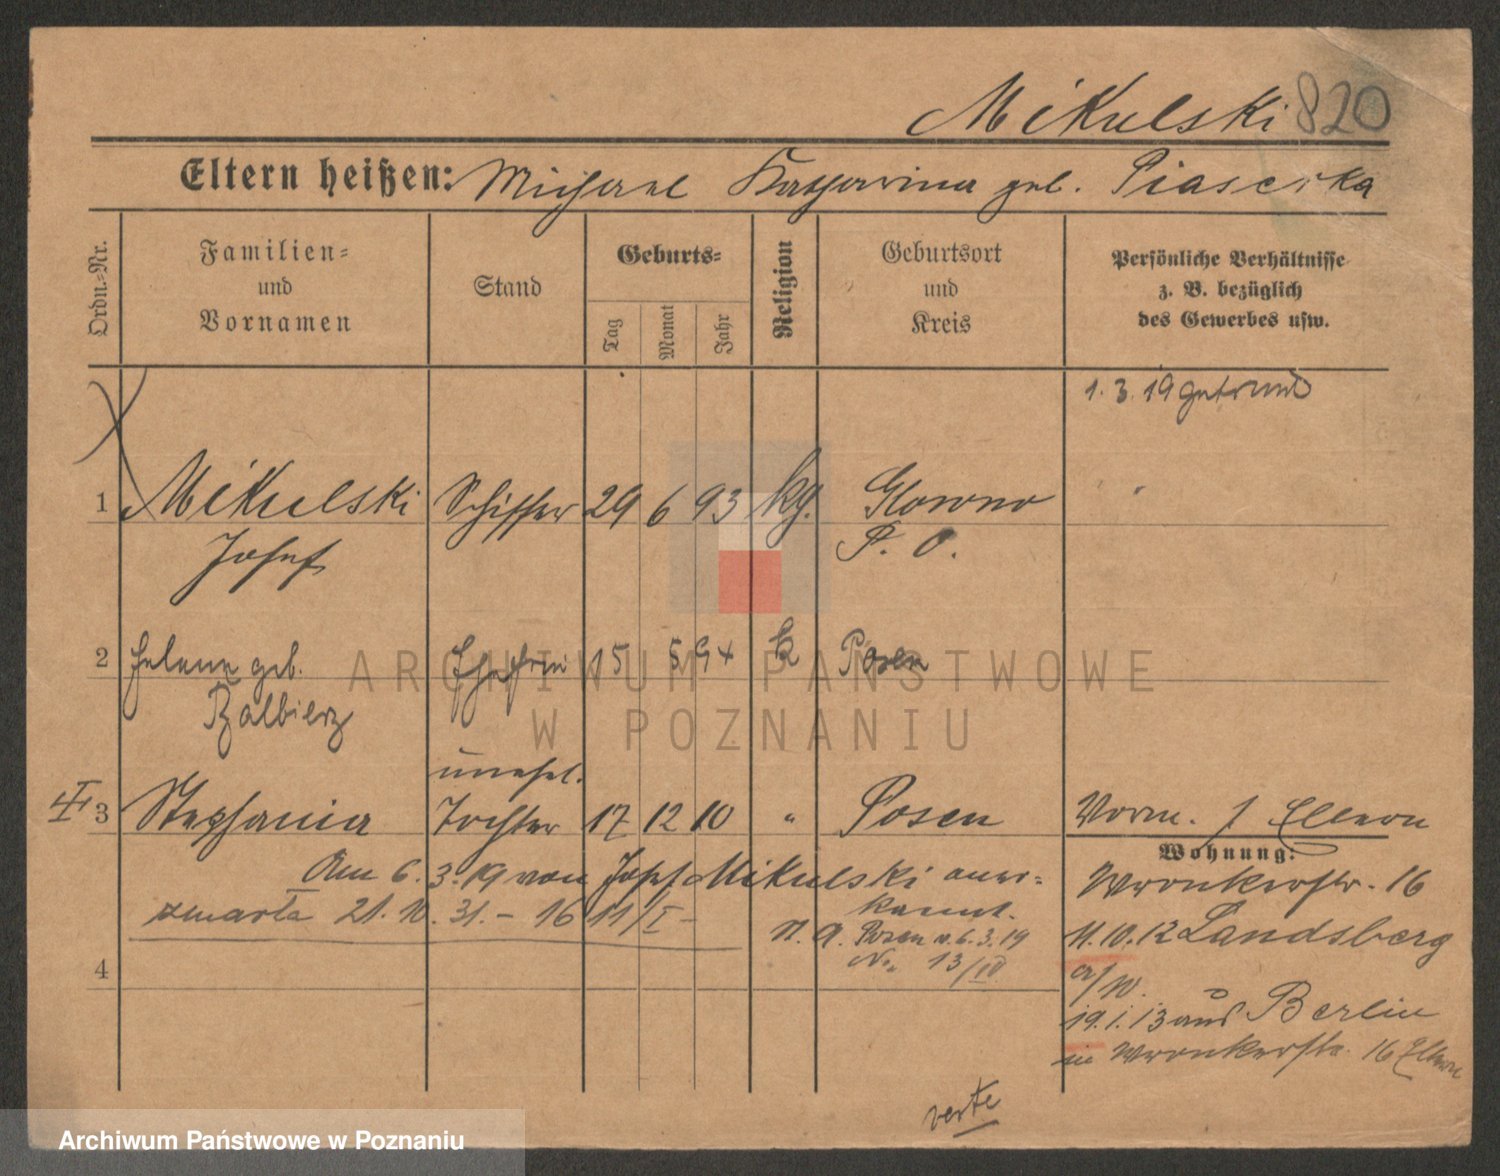 Mikulski 820
Eltern heißen: Michael Katharina geb. Piasecka
Ordn.-Nr.
Familien-
und
Vornamen
Stand
Geburts-
Tag
Monat
Jahr
Religion
Geburtsort
und
Kreis
Persönliche Verhältnisse
z. B. bezüglich
des Gewerbes usw.
1. 3. 19 getraut
1 Mikulski Schiffer 29 6 93 kg. Glowno
Josef P. O.
2 Helene geb. Ehefrau 15 5 94 k Posen
Balbierz
unehel.
3 Stephania Tochter 17 12 10 " Posen Vorm. f Eltern
Wohnung:
Am 6. 3. 19 von Josef Mikulski aner-
kannt.
Wronkerstr. 16
zmarła 21. 10. 31. – 16 11/I –
St. A. Posen v. 6. 3. 19
No. 13/IV
11. 10. 12 Landsberg
a/W.
4
19. 1. 13 aus Berlin
in Wronkerstr. 16 Eltern
verte
ARCHIWUM PAŃSTWOWE
W POZNANIU
Archiwum Państwowe w Poznaniu